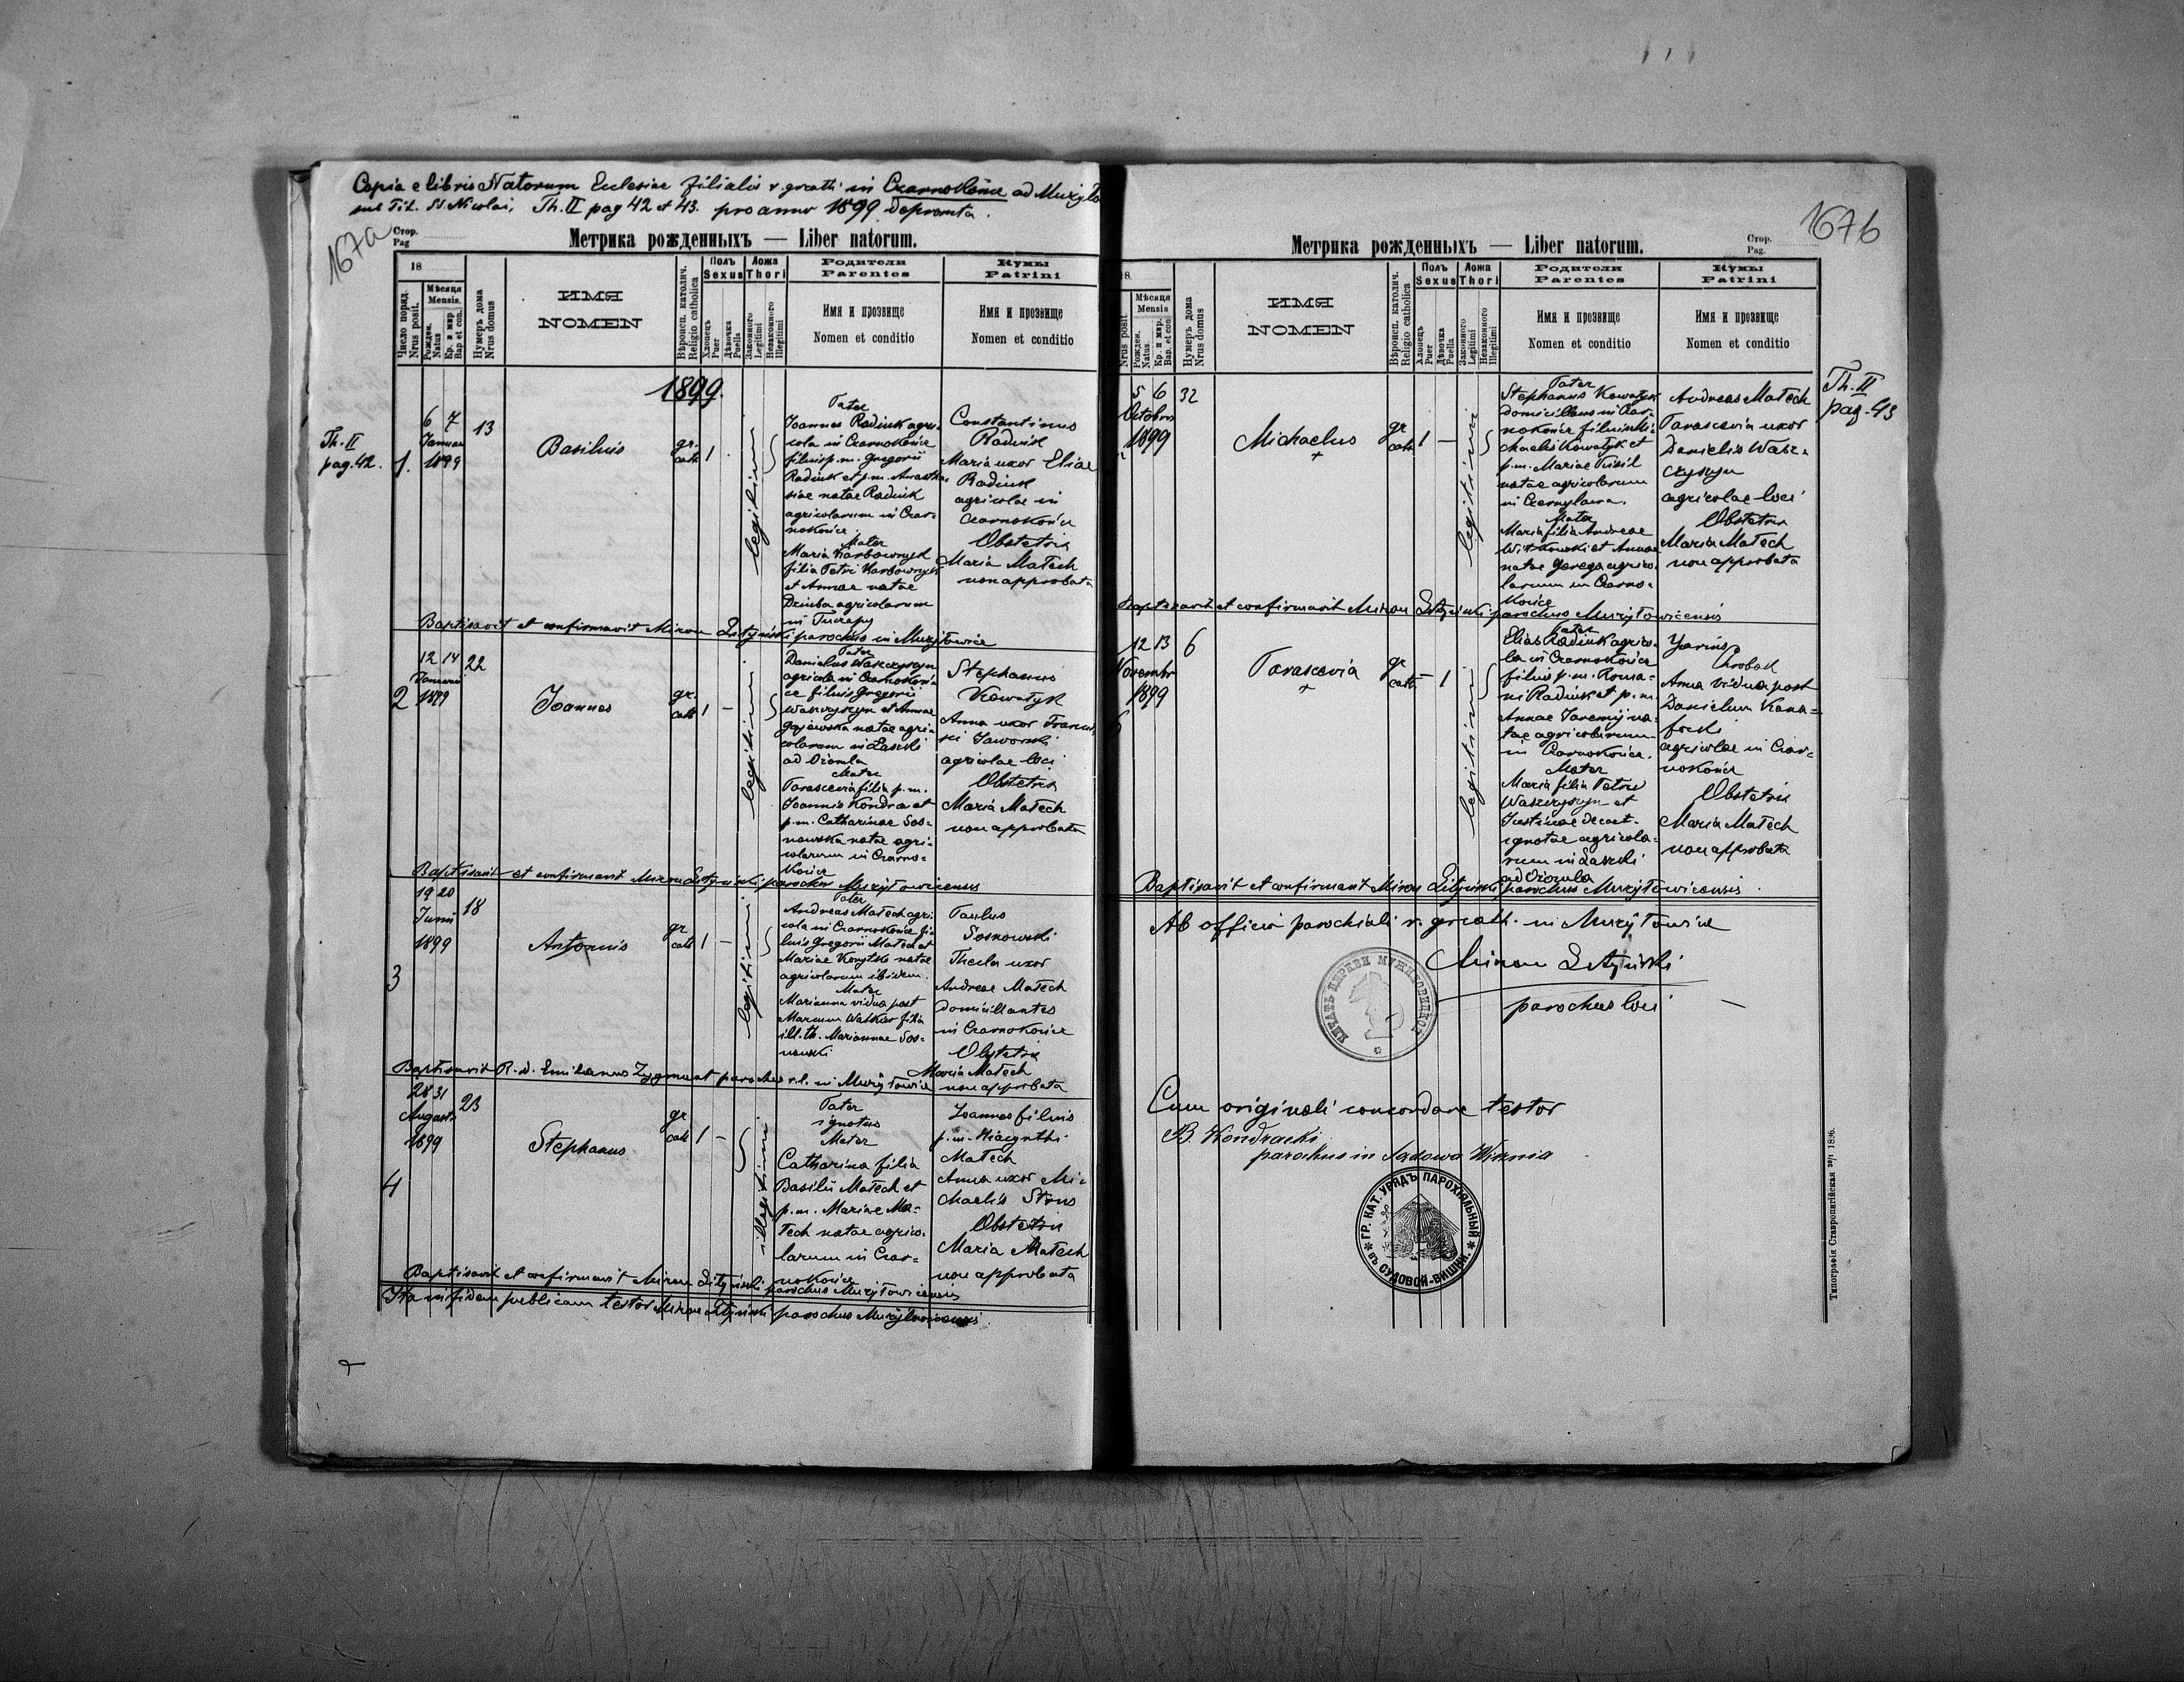 Copia e libris Natorum Ecclesiae filialis r. gr cath in Czarnokońce ad Mużyło
sub Tit. St. Nicolai, Th. II pag 42 et 43. pro anno 1899 deprompta.
167a
Стор.
Pag
Метрика рожденныхъ — Liber natorum.
18
Число поряд.
Nrus posit.
Мѣсяця
Mensis.
Рожден.
Natus
Кр. и мѵр.
Bap et con.
Нумеръ дома
Nrus domus
ИМЯ
NOMEN
Вѣроисп. католич.
Religio catholica
Полъ
Sexus
Хлопецъ
Puer
Дѣвочка
Puella
Ложа
Thori
Законного
Legitimi
Незаконного
Illegitimi
Родители
Parentes
Имя и прозвище
Nomen et conditio
Кумы
Patrini
Имя и прозвище
Nomen et conditio
1899.
Th. II
pag. 42.
1.
6 7
Januar
1899
13
Basilius
gr.
cath
1
legitimi
Pater
Joannes Radiuk agri-
cola in Czarnokońce
filius p. m. Gregorii
Radiuk et p. m. Anasta-
siae natae Radiuk
agricolarum in Czar-
nokońce
Mater
Maria Karbownyk
filia Petri Karbownyk
et Annae natae
Dziuba agricolarum
in Tuczapy
Constantinus
Radiuk
Maria uxor Eliae
Radiuk
agricolae in
Czarnokońce
Obstetrix
Maria Matech
non approbata
Baptisavit et confirmavit Miron Lityński parochus in Mużyłowice
2
12 14
Januarii
1899
22
Joannes
gr.
cath
1 –
legitimi
Pater
Danielus Waszczyszyn
agricola in Czarnokoń-
ce filius Gregorii
Waszczyszyn et Annae
Gajewska natae agri-
colarum in Laszki
ad
Mater
Parascevia filia p. m.
Joannis Kondra et
p. m. Catharinae Sos-
nowska natae agri-
colarum in Czarno-
końce
Stephanus
Kowałyk
Anna uxor Francis
ci Jaworski
agricolae loci
Obstetrix
Maria Matech
non approbata
Baptisavit et confirmavit Miron Lityński parochus Mużyłowicensis
3
19 20
Junii
1899
18
Antonius
gr
cath
1 –
legitimi
Pater
Andreas Matech agri
cola in Czarnokońce fi-
lius Gregorii Matech et
Mariae Korytko natae
agricolarum ibidem.
Mater
Marianna vidua post
Marcum Waskiw filia
ill. th. Mariannae Sos-
nowski
Paulus
Sosnowski
Thecla uxor
Andreae Matech
domicillantes
in Czarnokońce
Obstetrix
Maria Matech
non approbata
Baptisavit R. d. Emilianus Zygmunt parochus r. l. in Mużyłowice
4
28 31
Augusti
1899
23
Stephanus
gr
cath
1 –
illegitimi
Pater
ignotus
Mater
Catharina filia
Basilii Matech et
p. m. Mariae Ma-
tech natae agrico-
larum in Czar-
nokońce
Joannes filius
p. m. Hiacynthi
Matech
Anna uxor Mi-
chaelis Stius
Obstetrix
Maria Matech
non approbata
Baptisavit et confirmavit Miron Lityński parochus Mużyłowicensis
Ita in fidem publicam testor Miron Lityński parochus Mużyłowicensis
167b
Метрика рожденныхъ — Liber natorum.
Стор.
Pag.
18
Nrus posit
Мѣсяця
Mensis
Рожден.
Natus
Кр. и мѵр.
Bap. et con
Нумеръ дома
Nrus domus
ИМЯ
NOMEN
Вѣроисп. католич.
Religio catholica
Полъ
Sexus
Хлопецъ
Puer
Дѣвочка
Puella
Ложа
Thori
Законного
Legitimi
Незаконного
Illegitimi
Родители
Parentes
Имя и прозвище
Nomen et conditio
Кумы
Patrini
Имя и прозвище
Nomen et conditio
Th. II
pag. 43
5 6
Octobris
1899
32
Michaelus
+
gr
cath
1 –
legitimi
Pater
Stephanus Kowałyk
domicillans in Czar-
nokońce filius Mi-
chaelis Kowałyk et
p. m. Mariae Kisil
natae agricolarum
in Czernylawa.
Mater
Maria filia Andreae
Witkowski et Annae
natae Gerega agrico-
larum in Czarno-
końce
Andreas Matech
Parascevia uxor
Danielis Wasz-
czyszyn
agricolae loci
Obstetrix
Maria Matech
non approbata
Baptisavit et confirmavit Miron Lityński parochus Mużyłowicensis
6
12 13
Novembr
1899
6
Parascevia
+
gr
cath
– 1
legitimi
Pater
Elias Radiuk agrico-
la in Czarnokońce
filius p. m. Roma-
ni Radiuk et p. m.
Annae Jaremij na-
tae agricolarum
in Czarnokońce.
Mater
Maria filia Petri
Waszczyszyn et
Justinae de cact.
ignotae agricola-
rum in Laszki
ad
Hrobak
Anna vidua post
Danielum Kana-
focki
agricolae in Czar-
nokońce
Obstetrix
Maria Matech
non approbata
Baptisavit et confirmavit Miron Lityński parochus Mużyłowicensis
Ab officio parochiali r. gr cath. in Mużyłowice
Miron Lityński
parochus loci
ПЕЧАТЬ ЦЕРКВИ МУЖИЛОВИЦКОЙ
Cum originali concordare testor
B. Kondracki
parochus in Sądowa Wisznia
ГР. КАТ. УРЯДЪ ПАРОХІЯЛЬНЫЙ ВЪ СУДОВОЙ-ВИШНИ.
Типографія Ставропигійская 1896.